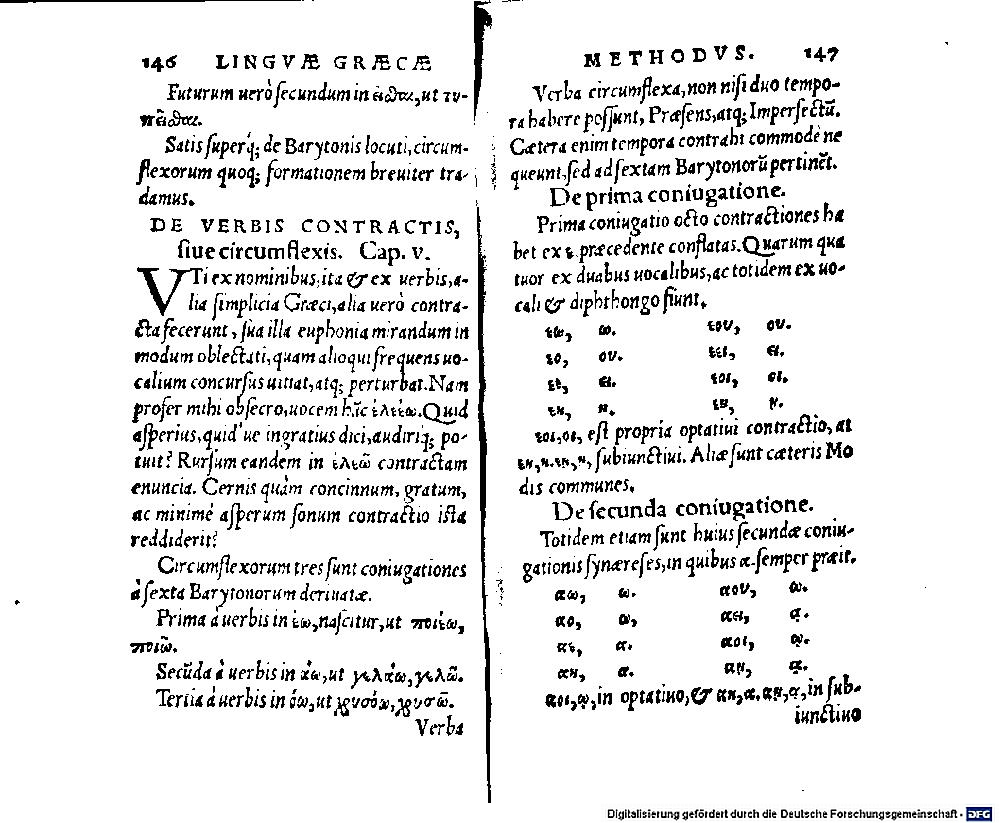 146 LINGVÆ GRÆCÆ
Futurum uerò secundum in εῖσθαι, ut τυ-
πεῖσθαι.
Satis superq́; de Barytonis locuti, circum-
flexorum quoq; formationem breuiter tra-
damus.
DE VERBIS CONTRACTIS,
siue circumflexis. Cap. v.
VTi ex nominibus, ita & ex uerbis, a-
lia simplicia Græci, alia uerò contra-
cta fecerunt, sua illa euphonia mirandum in
modum oblectati, quam alioqui frequens uo-
calium concursus uitiat, atq; perturbat. Nam
profer mihi obsecro, uocem hāc ἐλεέω. Quid
asperius, quid'ue ingratius dici, audiriq́; po-
tuit? Rursum eandem in ἐλεῶ contractam
enuncia. Cernis quàm concinnum, gratum,
ac minimè asperum sonum contractio ista
reddiderit?
Circumflexorum tres sunt coniugationes
à sexta Barytonorum deriuatæ.
Prima à uerbis in έω, nascitur, ut ποιέω,
ποιῶ.
Secūda à uerbis in άω, ut γελάω, γελῶ.
Tertia à uerbis in όω, ut χρυσόω, χρυσῶ.
Verba
METHODVS. 147
Verba circumflexa, non nisi duo tempo-
ra habere possunt, Præsens, atq; Imperfectū.
Cætera enim tempora contrahi commodè ne
queunt, sed ad sextam Barytonorū pertinēt.
De prima coniugatione.
Prima coniugatio octo contractiones ha
bet ex ε præcedente conflatas. Quarum qua
tuor ex duabus uocalibus, ac totidem ex uo-
cali & diphthongo fiunt.
εω, ω. εου, ου.
εο, ου. εει, ει.
εε, ει. εοι, οι.
εη, η. εῃ, ῃ.
εοι, οι, est propria optatiui contractio, at
εη, η. εῃ, ῃ, subiunctiui. Aliæ sunt cæteris Mo
dis communes.
De secunda coniugatione.
Totidem etiam sunt huius secundæ coniu-
gationis synæreses, in quibus α semper præit.
αω, ω. αου, ω.
αο, ω, αει, ᾳ.
αε, α. αοι, ῳ.
αη, α. αῃ, ᾳ.
αοι, ῳ, in optatiuo, & αη, α. αῃ, ᾳ, in sub-
iunctiuo
Digitalisierung gefördert durch die Deutsche Forschungsgemeinschaft - DFG